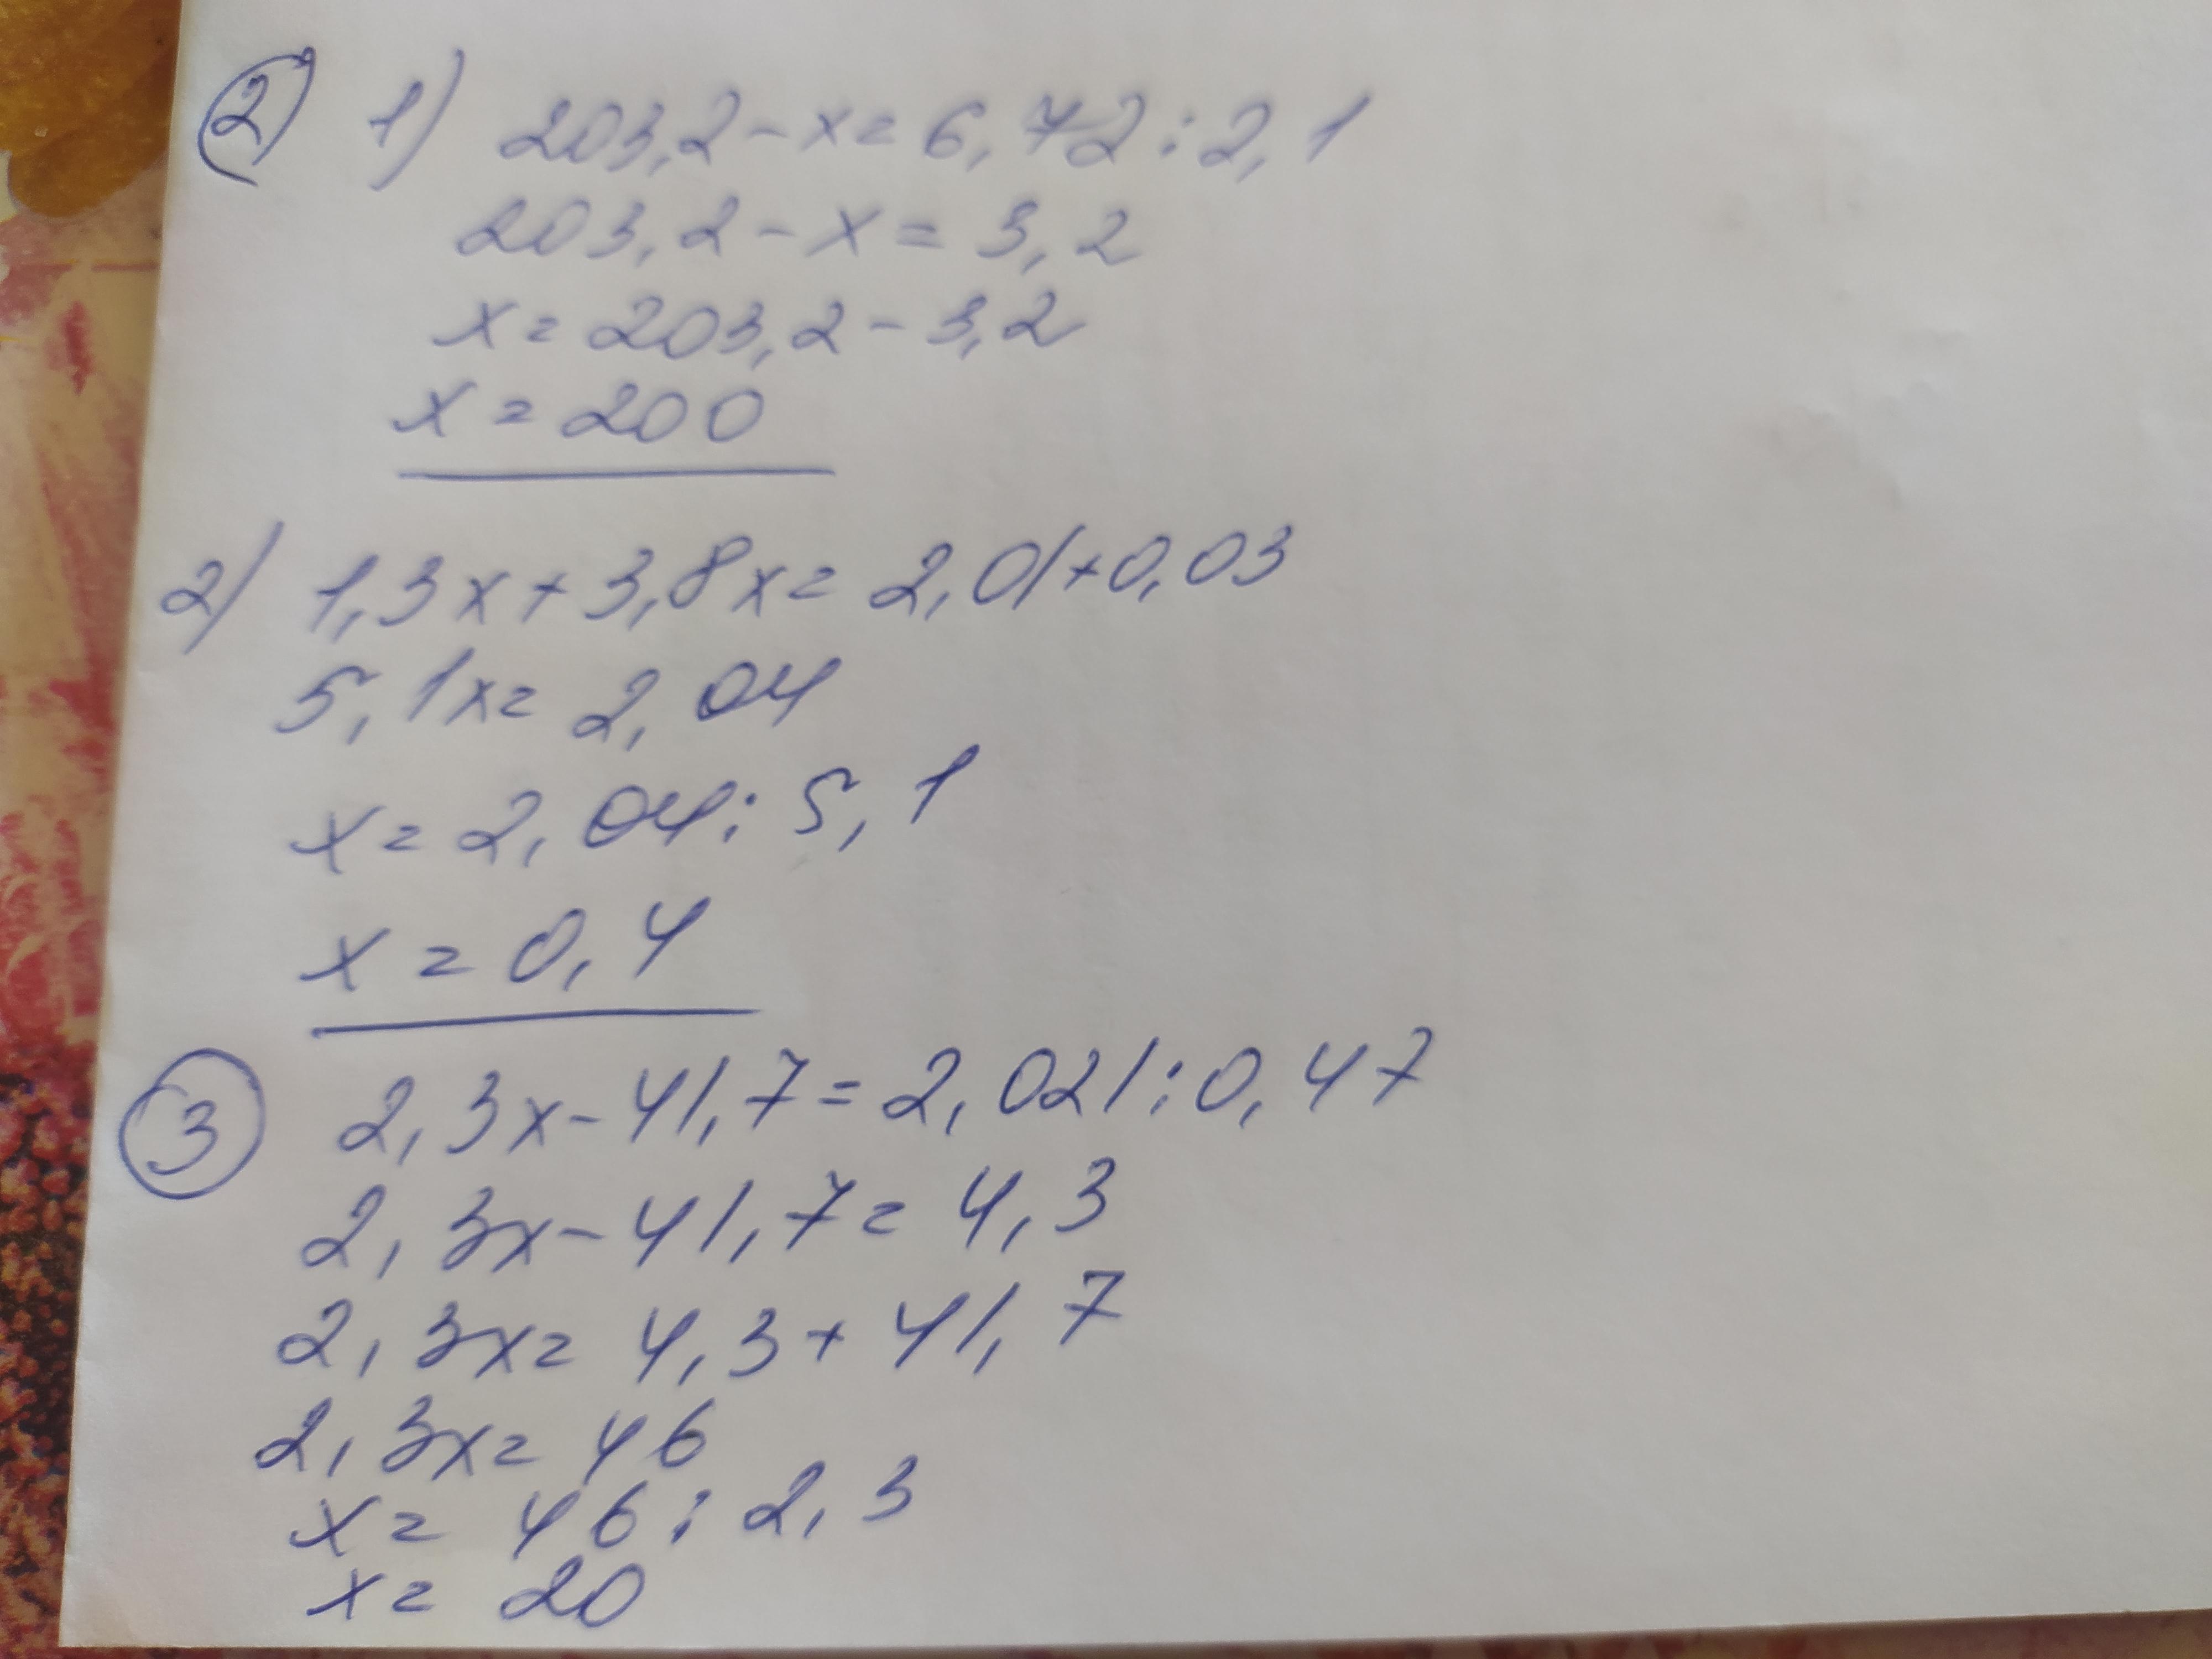 2) 1) 203,2-x=6,72:2,1
203,2-x=3,2
x=203,2-3,2
x=200
2) 1,3x+3,8x=2,01+0,03
5,1x=2,04
x=2,04:5,1
x=0,4
3 2,3x-41,7=2,021:0,47
2,3x-41,7=4,3
2,3x=4,3+41,7
2,3x=46
x=46:2,3
x=20